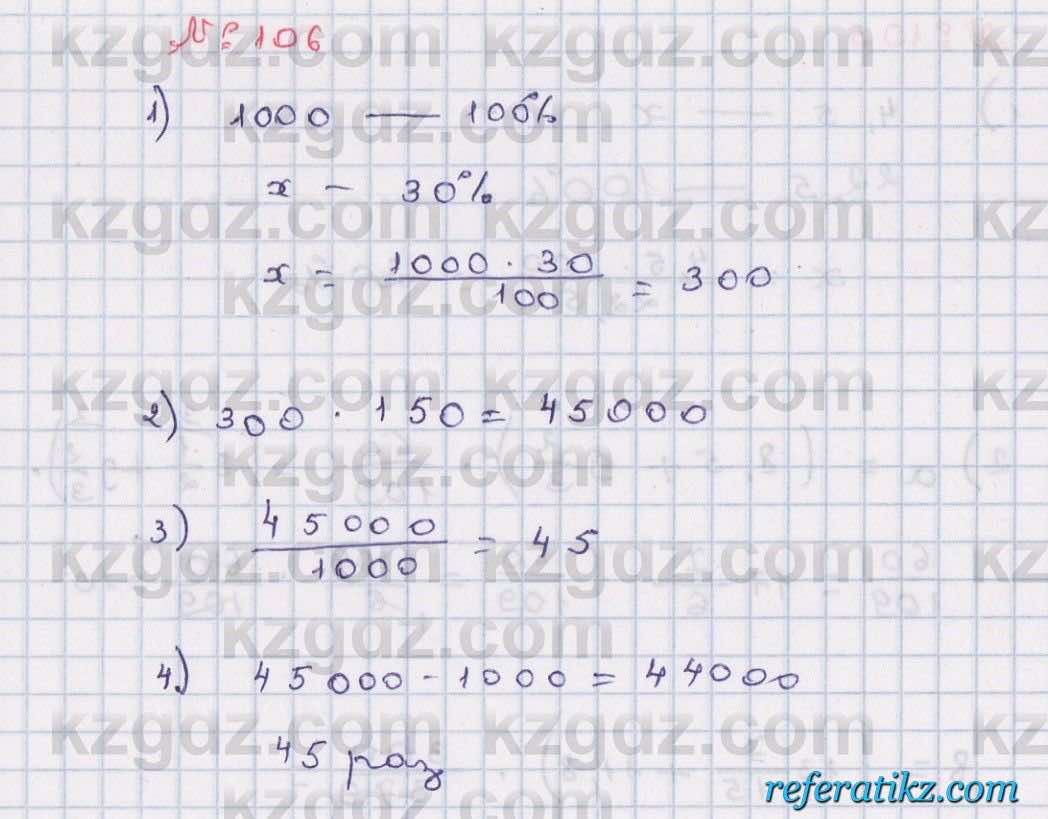 № 106
1) 1000 — 100%
x - 30%
x = \frac{1000 · 30}{100} = 300
2) 300 · 150 = 45000
3) \frac{45000}{1000} = 45
4) 45000 - 1000 = 44000
45 раз
kzgdz.com
referatikz.com